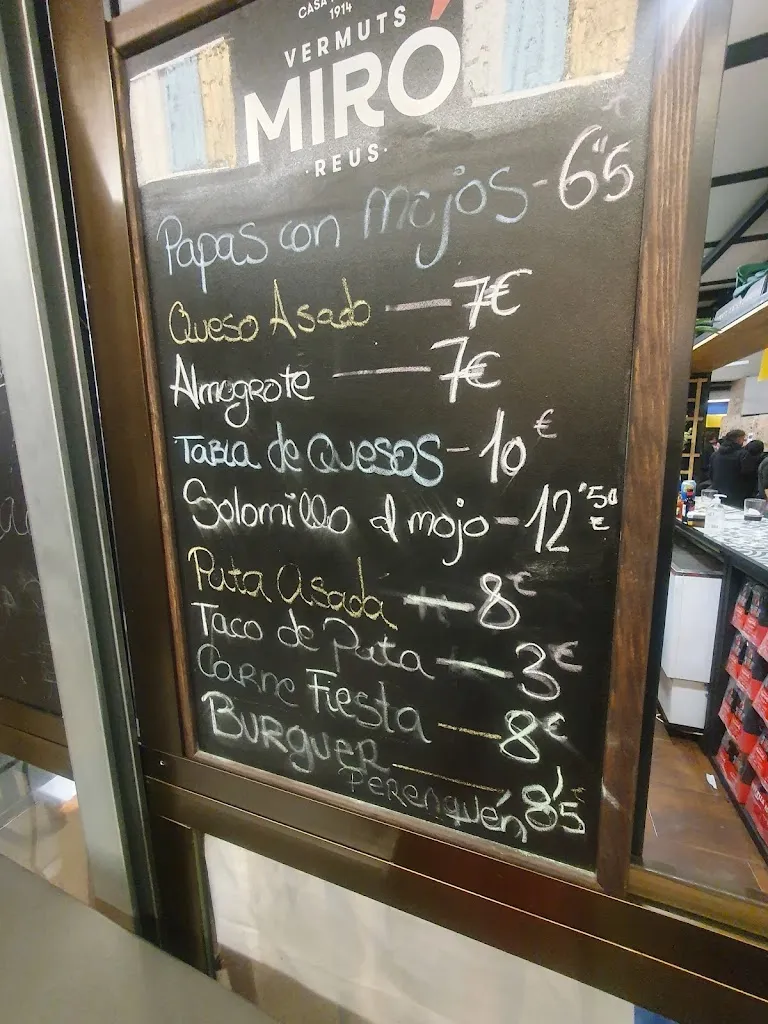 CASA
1914
VERMUTS
MIRÓ
·REUS·
Papas con mojos - 6"5
Queso Asado — 7€
Almogrote — 7€
Tabla de Quesos - 10€
Solomillo al mojo - 12'50€
Pata asada — 8€
Taco de Pata — 3€
Carne Fiesta — 8€
Burguer — 8'5
Perenquén